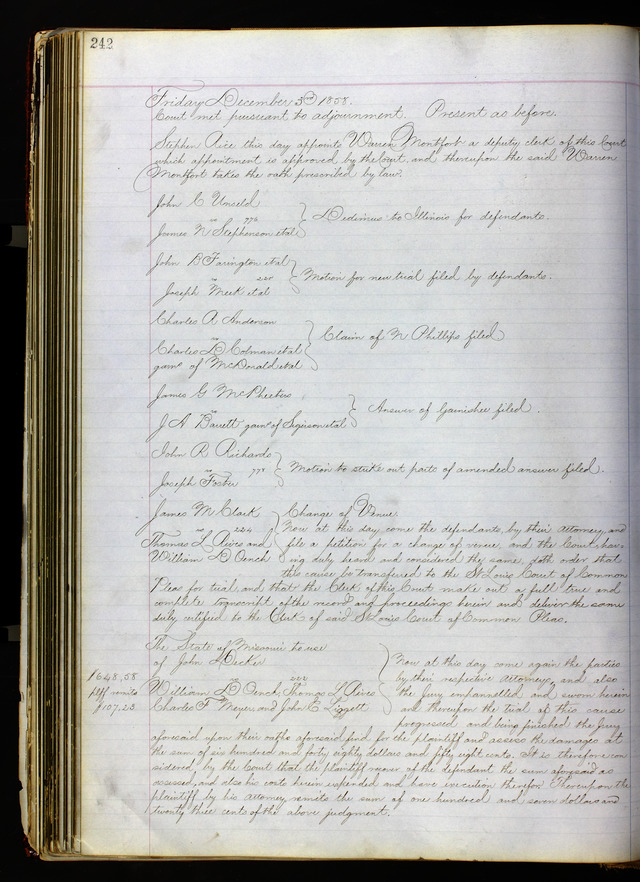 242
Friday December 3rd 1858.
Court met pursuant to adjournment. Present as before.
Stephen Rice this day appoints Warren Montfort a deputy clerk of this Court
which appointment is approved by the Court, and thereupon the said Warren
Montfort takes the oath prescribed by law.
John C Unseld
vs 776 } Dedimus to Illinois for defendants.
James N Stephenson et al
John B Farington et al
vs 220 } Motion for new trial filed by defendants.
Joseph Meek et al
Charles A Anderson
vs } Claim of N Phillips filed
Charles D Colman et al
garn. of McDonald et al
James G McPheeters
vs } Answer of Garnishee filed.
J A Barrett garn. of et al
John R Richards
vs 778 } Motion to strike out parts of amended answer filed.
Joseph Foster
James M Clark } Change of Venue.
vs 224 Now at this day come the defendants, by their Attorney, and
Thomas L Rives and file a petition for a change of venue, and the Court, hav-
William D Oench ing duly heard and considered the same, doth order that
this cause be transferred to the St Louis Court of Common
Pleas for trial, and that the Clerk of this Court make out a full true and
complete transcript of the record and proceedings herein and deliver the same
duly certified to the Clerk of said St Louis Court of Common Pleas.
The State of Missouri to use
of John Decker } Now at this day come again the parties
1648,58 by their respective Attorneys, and also
plff remits vs 202 the jury empannelled and sworn herein
William D Oench, Thomas L Rives and thereupon the trial of this cause
$107.23 Charles F Meyer, and John E Liggett
progressed and being finished the jury
aforesaid upon their oaths aforesaid find for the plaintiff and assess the damages at
the sum of six hundred and forty eighty dollars and fifty eight cents. It is therefore con
sidered, by the Court that the plaintiff recover of the defendant the sum aforesaid as
assessed, and also his costs herein expended and have execution therefor. Thereupon the
plaintiff by his Attorney, remits the sum of one hundred and seven dollars and
twenty three cents of the above judgment.